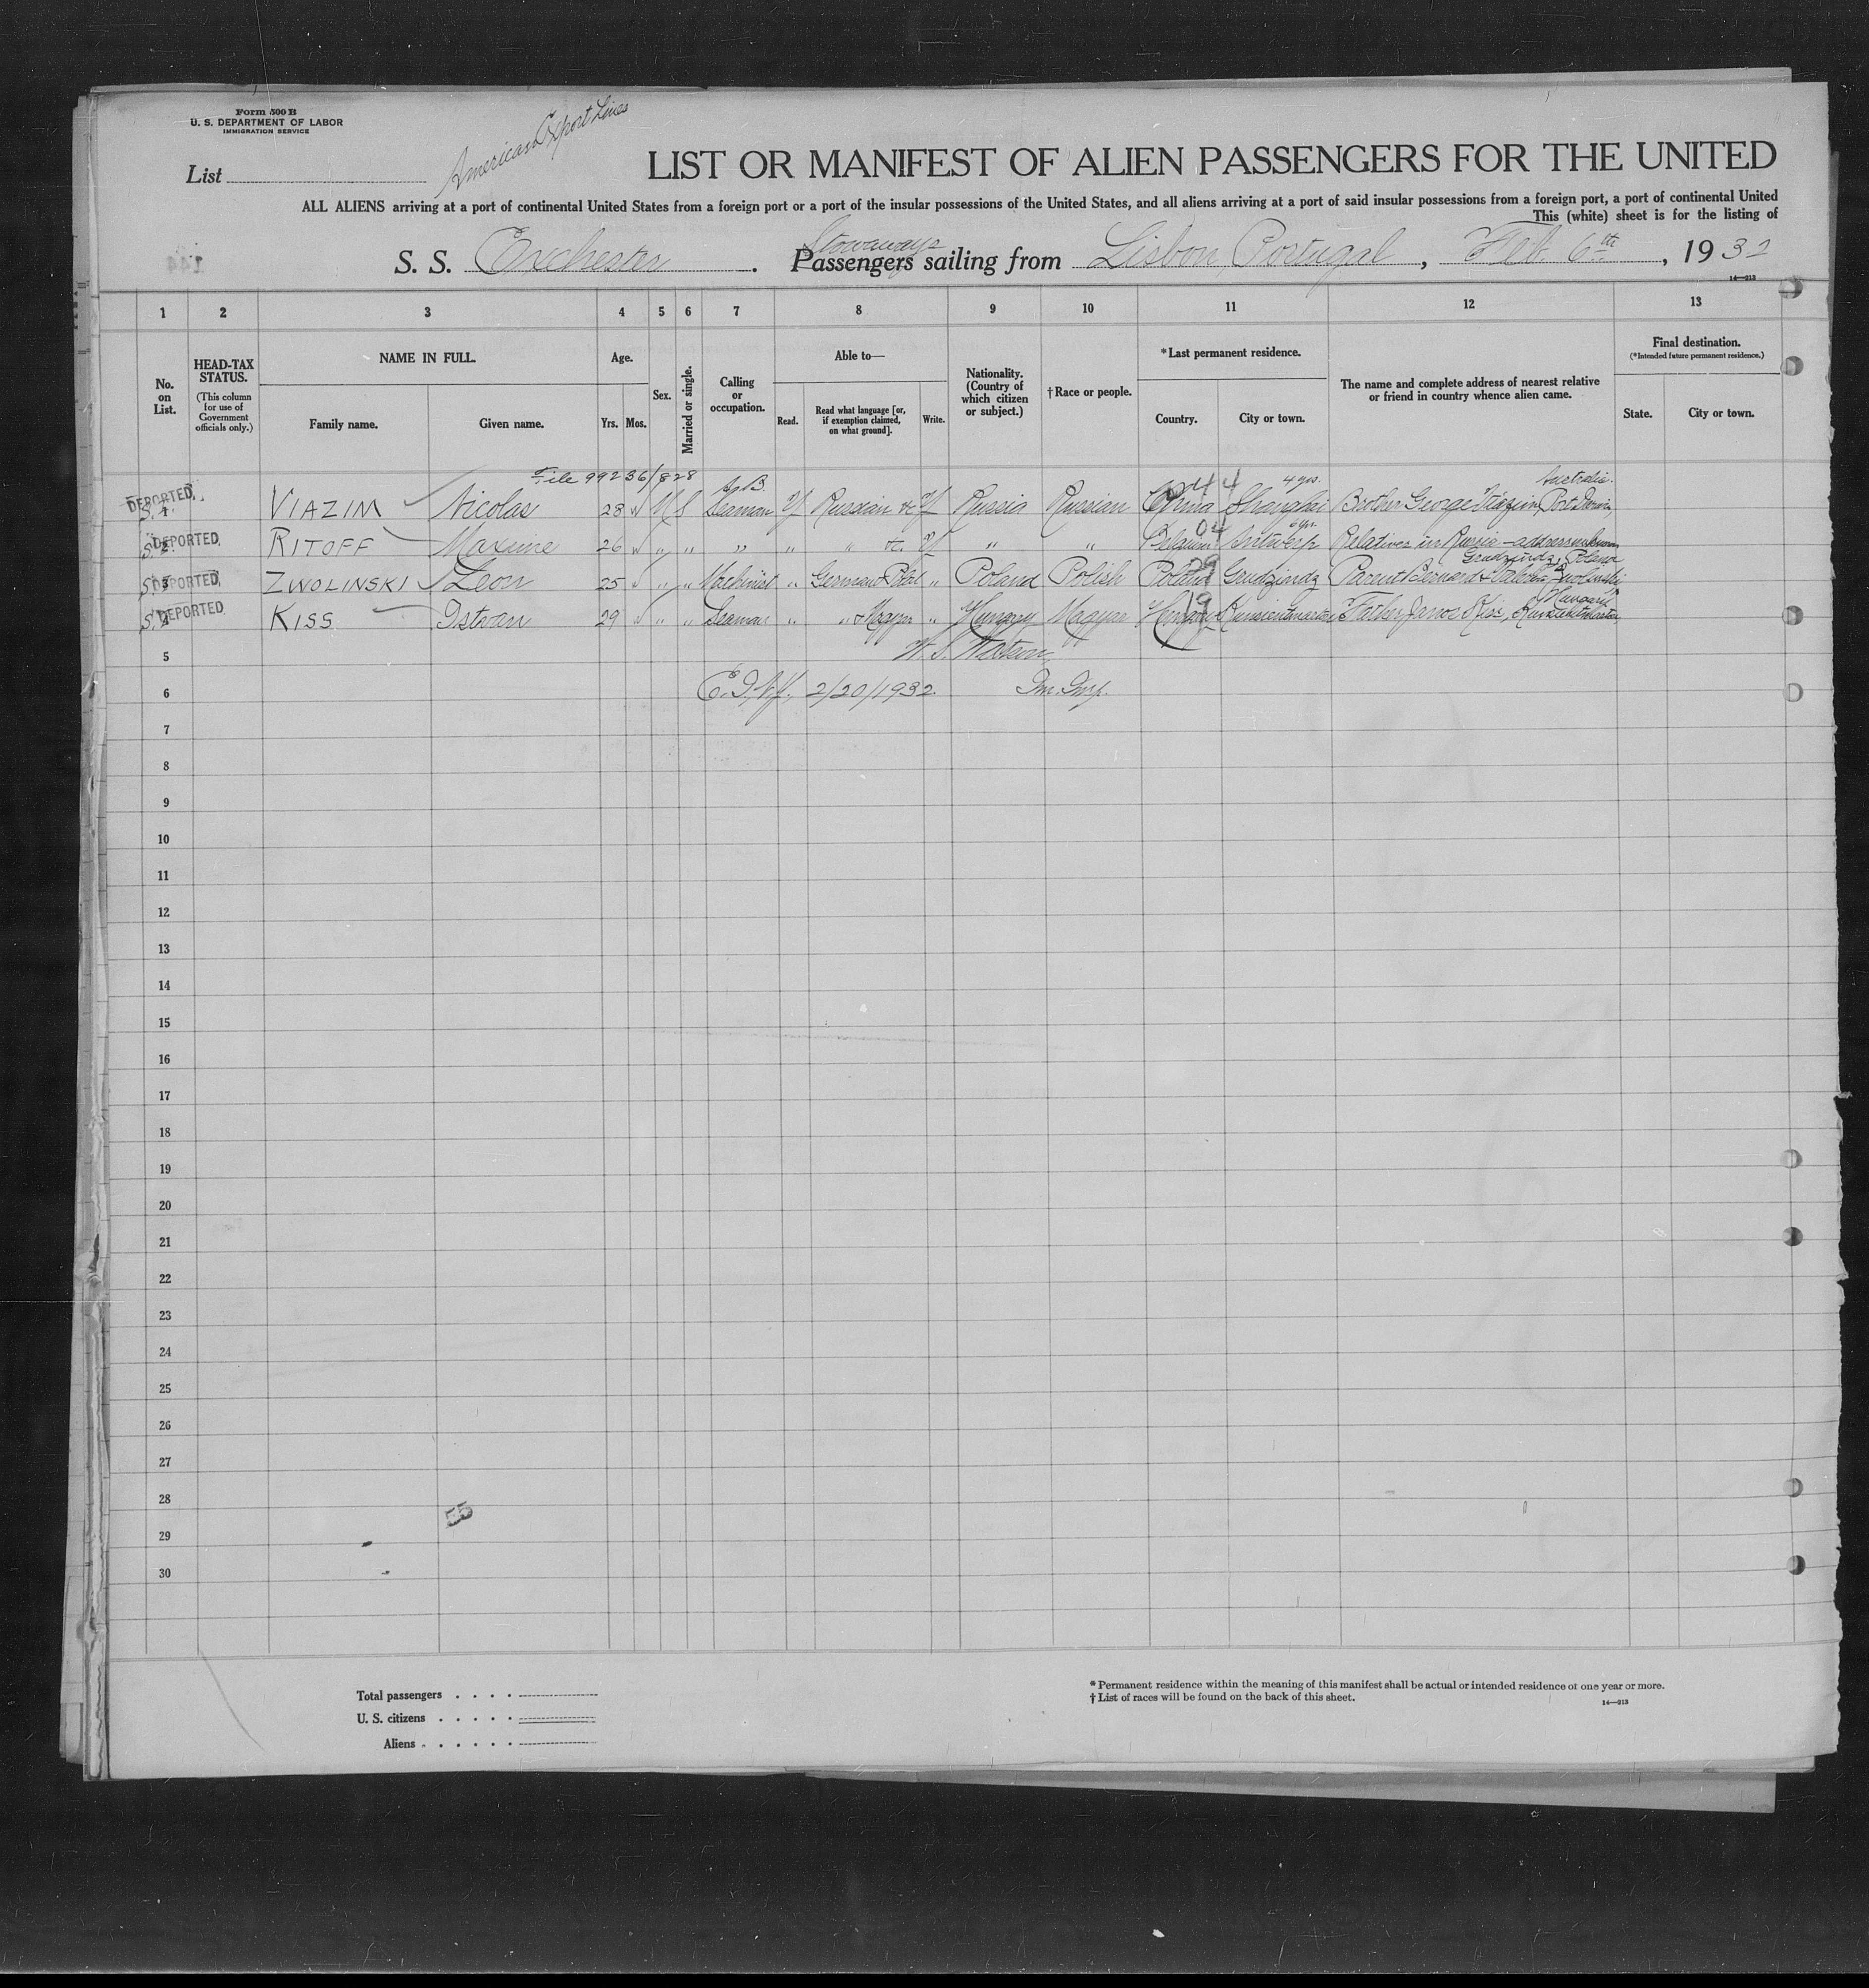 Form 500 B
U. S. DEPARTMENT OF LABOR
IMMIGRATION SERVICE
American Export Lines
List
LIST OR MANIFEST OF ALIEN PASSENGERS FOR THE UNITED
ALL ALIENS arriving at a port of continental United States from a foreign port or a port of the insular possessions of the United States, and all aliens arriving at a port of said insular possessions from a foreign port, a port of continental United
This (white) sheet is for the listing of
Stowaways
S. S. Exchester . Passengers sailing from Lisbon, Portugal , Feb. 6th , 1932
14—213
1 2 3 4 5 6 7 8 9 10 11 12 13
No. on List.
HEAD-TAX STATUS.
(This column for use of Government officials only.)
NAME IN FULL.
Family name. Given name.
Age.
Yrs. Mos.
Sex.
Married or single.
Calling or occupation.
Able to—
Read. Read what language [or, if exemption claimed, on what ground]. Write.
Nationality. (Country of which citizen or subject.)
† Race or people.
* Last permanent residence.
Country. City or town.
The name and complete address of nearest relative or friend in country whence alien came.
Final destination.
(*Intended future permanent residence.)
State. City or town.
File 99236/828 4 yrs. Australia.
DEPORTED S. 1 VIAZIM Nicolas 28 M S Seaman Y Russian Y Russia Russian China 44 Shanghai Brother George Viazim, Port Darwin,
6 yrs.
DEPORTED S. 2 RITOFF Maxime 26 " " " " " Y " " Belgium 04 Antwerp Relatives in Russia - address unknown
Grudziadz, Poland
DEPORTED S. 3 ZWOLINSKI Leon 25 " " Machinist " German & Polish " Poland Polish Poland Grudziadz Parent Bernard & Valeria Zwolinski
Hungary
DEPORTED S. 4 KISS Istvan 29 " " Seaman " " & Magyar " Hungary Magyar Hungary 19 Father, Janos Kiss,
5 W. S. Watson
6 2/20/1932 Im. Insp.
7
8
9
10
11
12
13
14
15
16
17
18
19
20
21
22
23
24
25
26
27
28
55
29
30
Total passengers
U. S. citizens
Aliens
* Permanent residence within the meaning of this manifest shall be actual or intended residence of one year or more.
† List of races will be found on the back of this sheet.
14—213